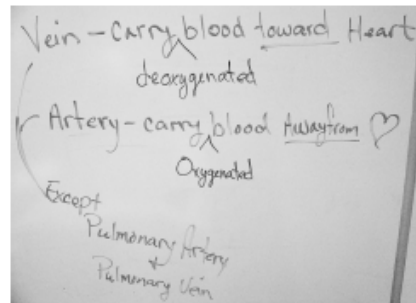 Vein - carry ^ blood toward Heart
deoxygenated
Artery - carry ^ blood Away from ♡
Oxygenated
Except
Pulmonary Artery
+
Pulmonary Vein